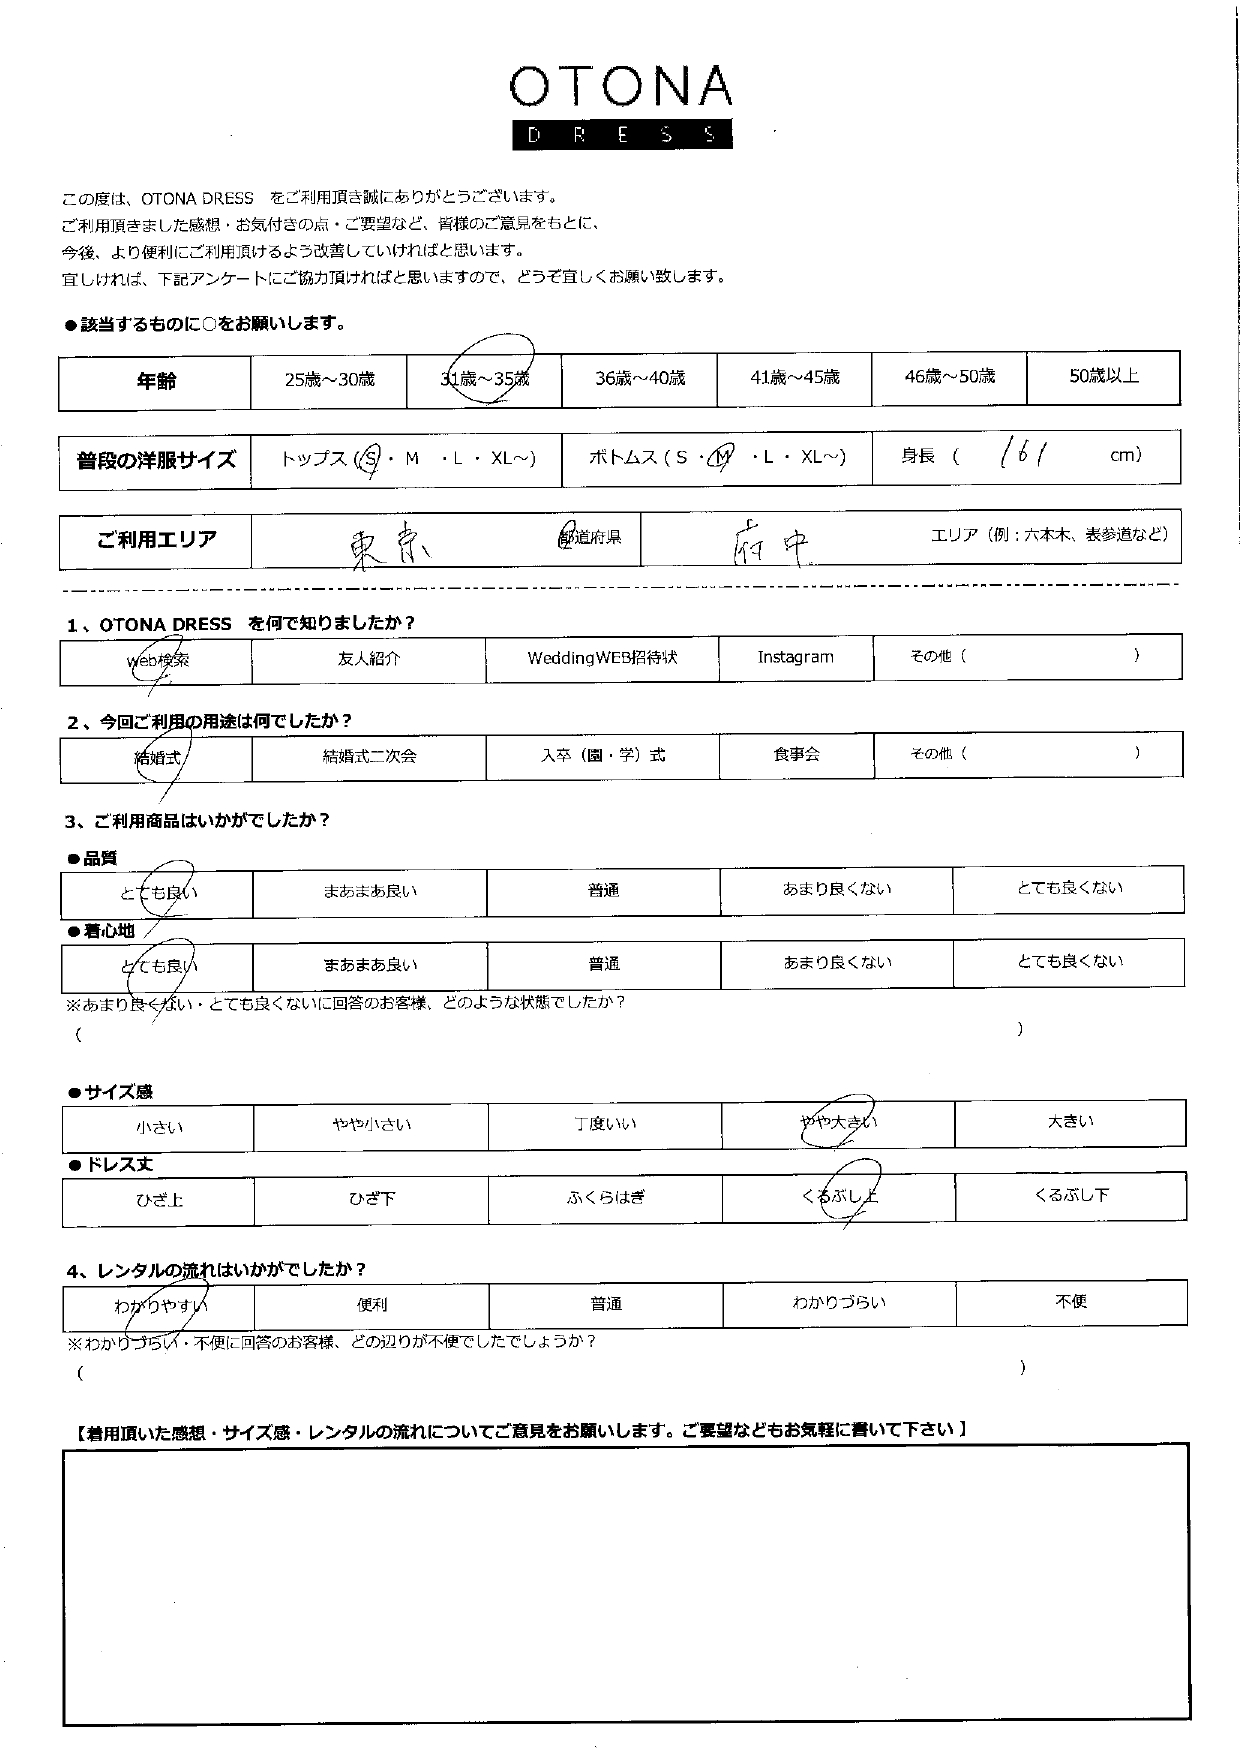 OTONA
DRESS
この度は、OTONA DRESS　をご利用頂き誠にありがとうございます。
ご利用頂きました感想・お気付きの点・ご要望など、皆様のご意見をもとに、
今後、より便利にご利用頂けるよう改善していければと思います。
宜しければ、下記アンケートにご協力頂ければと思いますので、どうぞ宜しくお願い致します。
●該当するものに○をお願いします。
年齢 25歳～30歳 31歳～35歳 36歳～40歳 41歳～45歳 46歳～50歳 50歳以上
普段の洋服サイズ トップス ( S ・ M ・ L ・ XL～) ボトムス ( S ・ M ・ L ・ XL～) 身長 ( 161 cm)
ご利用エリア 東京 都道府県 府中 エリア（例：六本木、表参道など）
1、OTONA DRESS　を何で知りましたか？
web検索 友人紹介 WeddingWEB招待状 Instagram その他（ ）
2、今回ご利用の用途は何でしたか？
結婚式 結婚式二次会 入卒（園・学）式 食事会 その他（ ）
3、ご利用商品はいかがでしたか？
●品質
とても良い まあまあ良い 普通 あまり良くない とても良くない
●着心地
とても良い まあまあ良い 普通 あまり良くない とても良くない
※あまり良くない・とても良くないに回答のお客様、どのような状態でしたか？
（ ）
●サイズ感
小さい やや小さい 丁度いい やや大きい 大きい
●ドレス丈
ひざ上 ひざ下 ふくらはぎ くるぶし上 くるぶし下
4、レンタルの流れはいかがでしたか？
わかりやすい 便利 普通 わかりづらい 不便
※わかりづらい・不便に回答のお客様、どの辺りが不便でしたでしょうか？
（ ）
【着用頂いた感想・サイズ感・レンタルの流れについてご意見をお願いします。ご要望などもお気軽に書いて下さい】